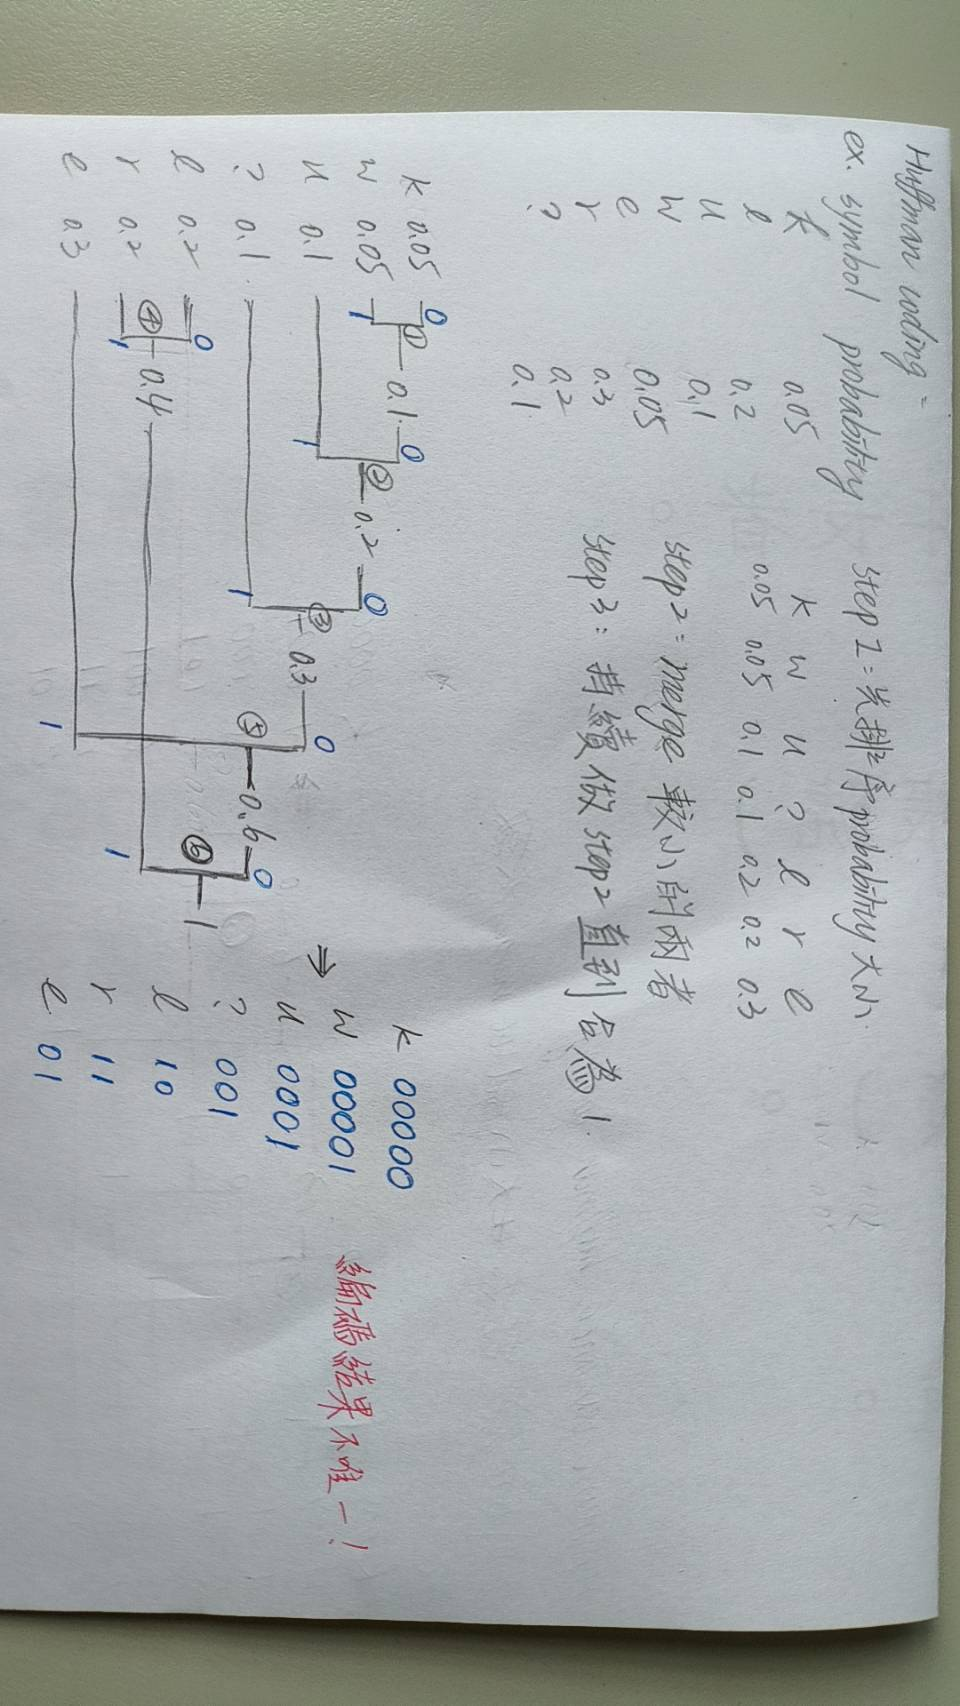 Huffman coding =
ex. symbol probability
k 0.05
l 0.2
u 0.1
w 0.05
e 0.3
r 0.2
? 0.1
step 1 = 先排序 probability 大小
k w u ? l r e
0.05 0.05 0.1 0.1 0.2 0.2 0.3
step 2 = merge 較小的兩者
step 3: 持續做 step 2 直到合為 1.
k 0.05 0
① 0.1 0
w 0.05 1
② 0.2 0
u 0.1 1
③ 0.3 0
? 0.1 1
⑤ 0.6 0
l 0.2 0
⑥ 1
④ 0.4 1
r 0.2 1
e 0.3 1
⇒
k 00000
w 00001
u 0001
? 001
l 10
r 11
e 01
編碼結果不唯一!